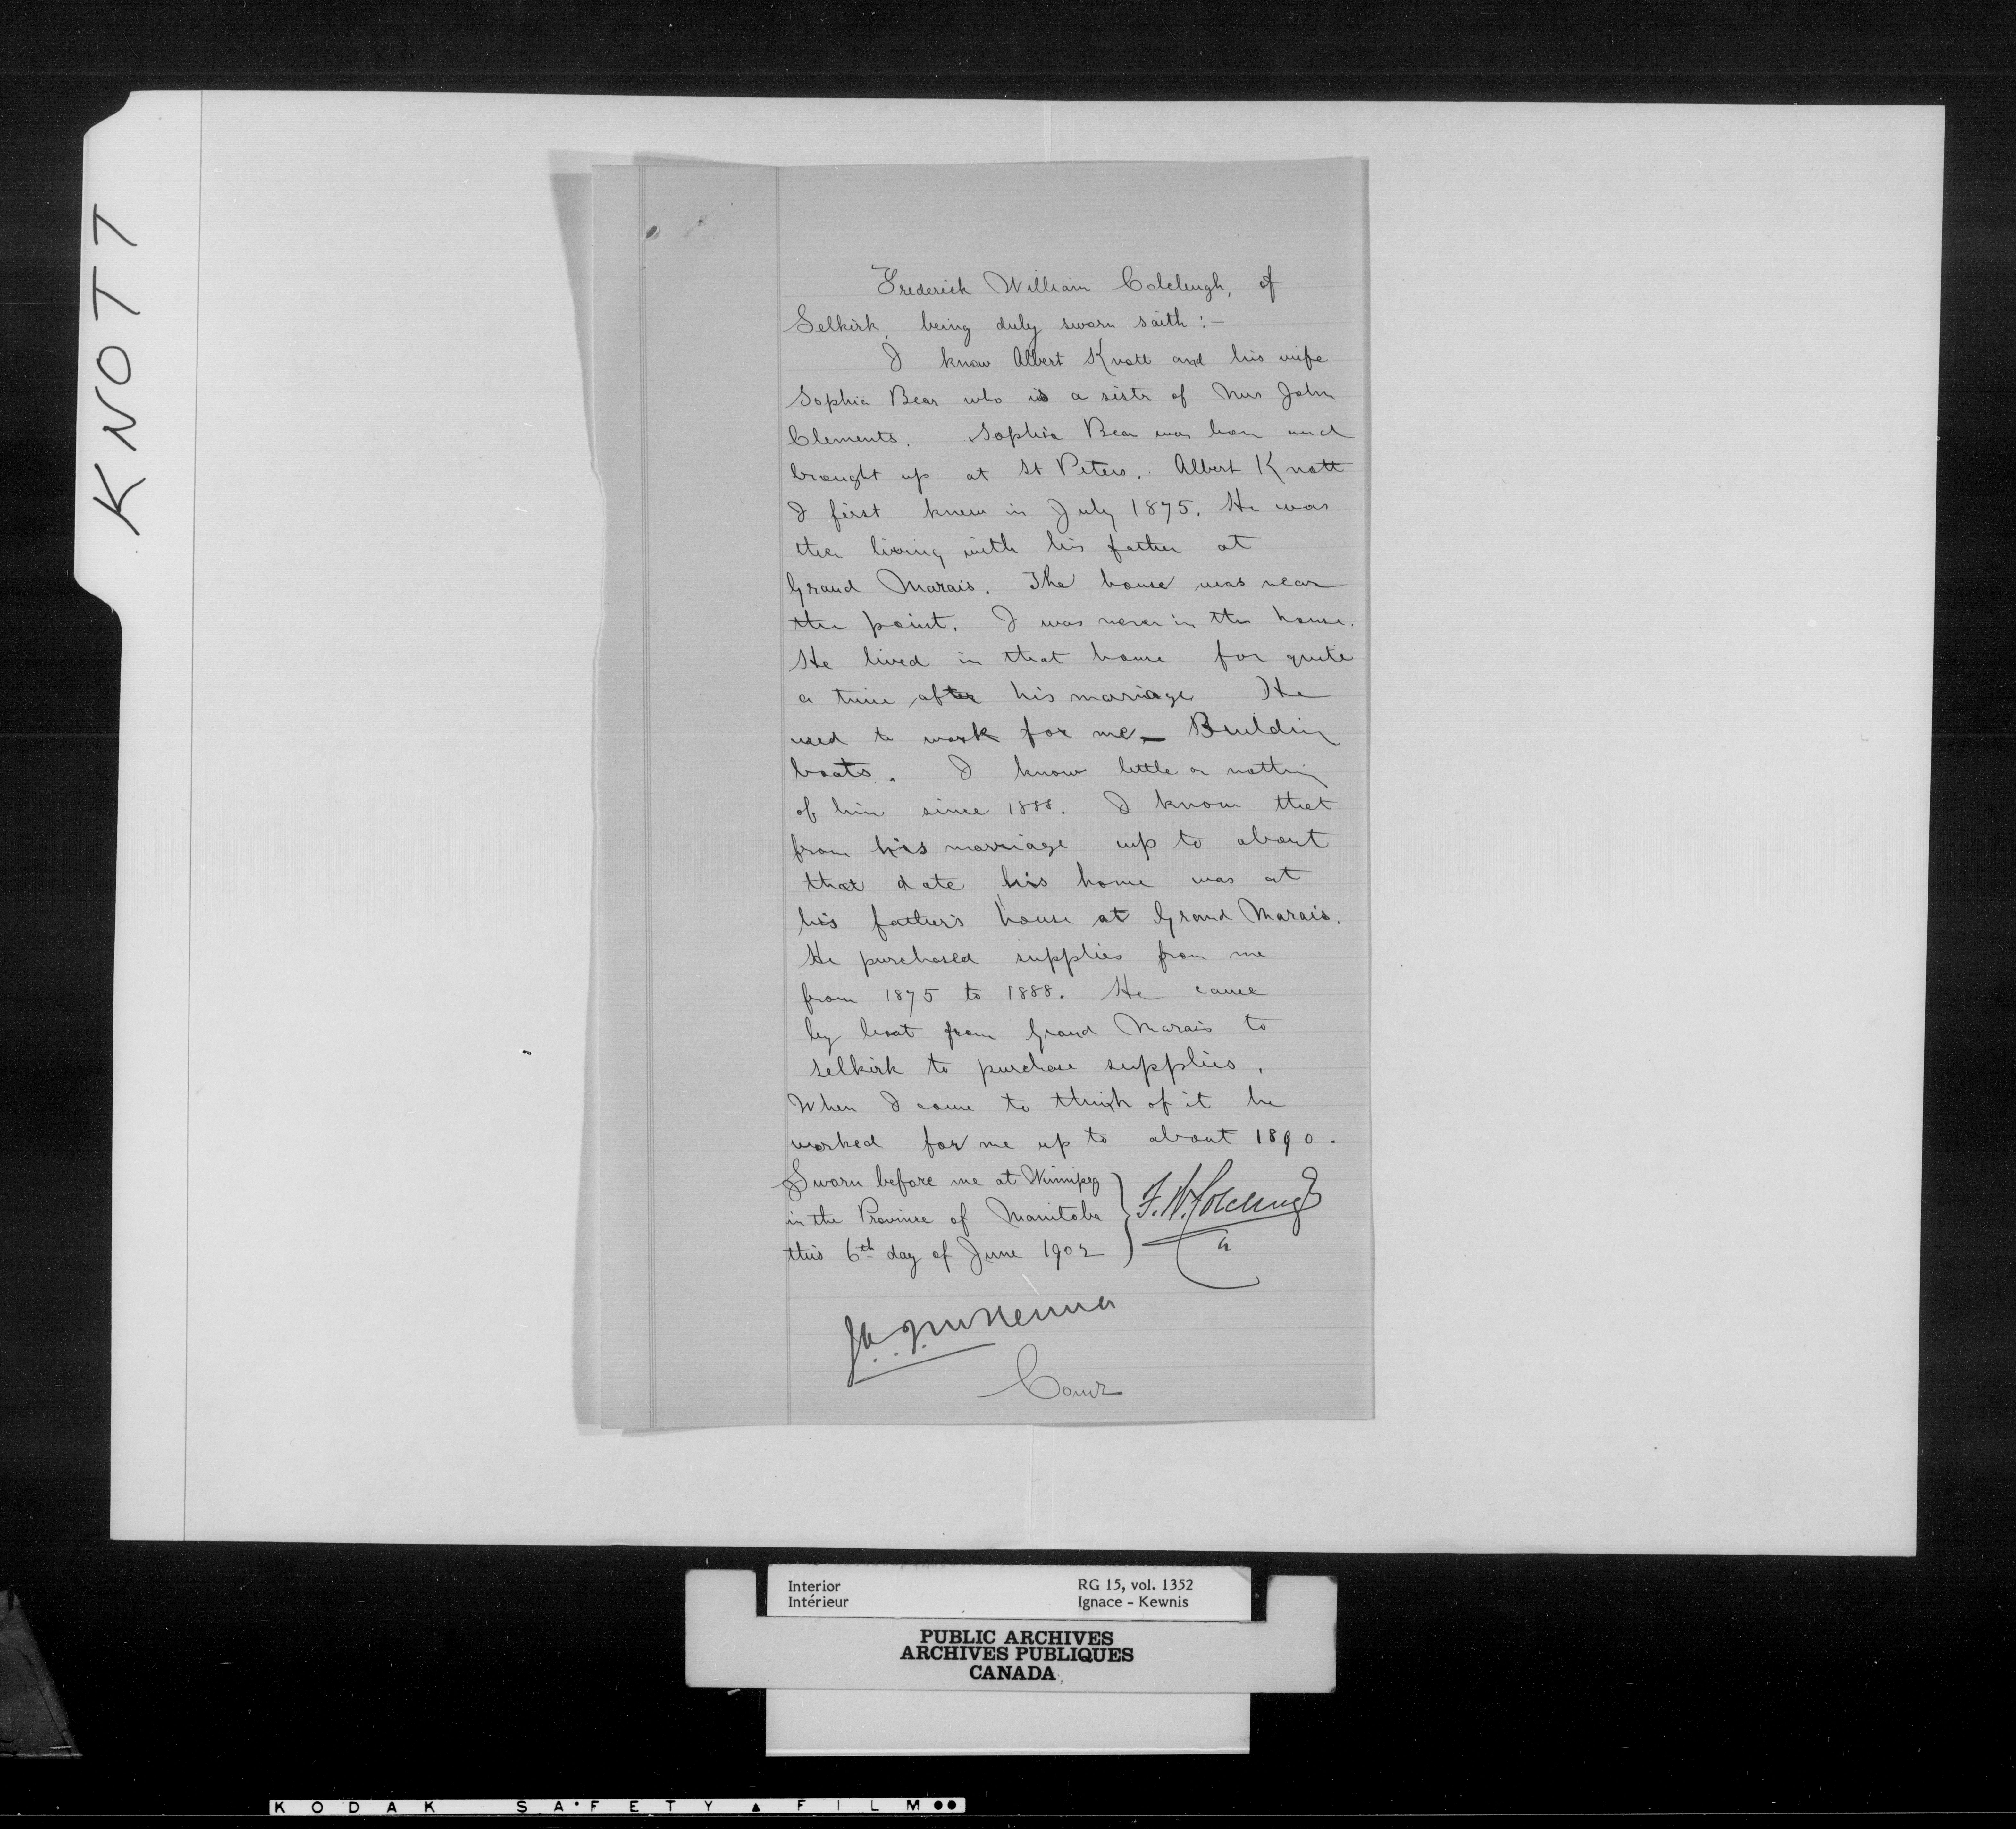 KNOTT
Frederick William Colcleugh, of
Selkirk, being duly sworn saith :-
I know Albert Knott and his wife
Sophia Bear who is a sistr of Mrs John
Clements. Sophia Bear was born and
brought up at St Peters. Albert Knott
I first knew in July 1875. He was
then living with his father at
Grand Marais. The house was near
the point. I was never in the house.
He lived in that house for quite
a time after his marriage He
used to work for me - Building
boats. I know little or nothing
of him since 1888. I know that
from his marriage up to about
that date his home was at
his father's house at Grand Marais.
He purchased supplies from me
from 1875 to 1888. He came
by boat from Grand Marais to
Selkirk to purchase supplies.
When I come to think of it he
worked for me up to about 1890.
Sworn before me at Winnipeg
in the Province of Manitoba
this 6th day of June 1902
F. W. Colcleugh
J. A. J. McKenna
Comr
Interior RG 15, vol. 1352
Intérieur Ignace - Kewnis
PUBLIC ARCHIVES
ARCHIVES PUBLIQUES
CANADA
KODAK SAFETY FILM